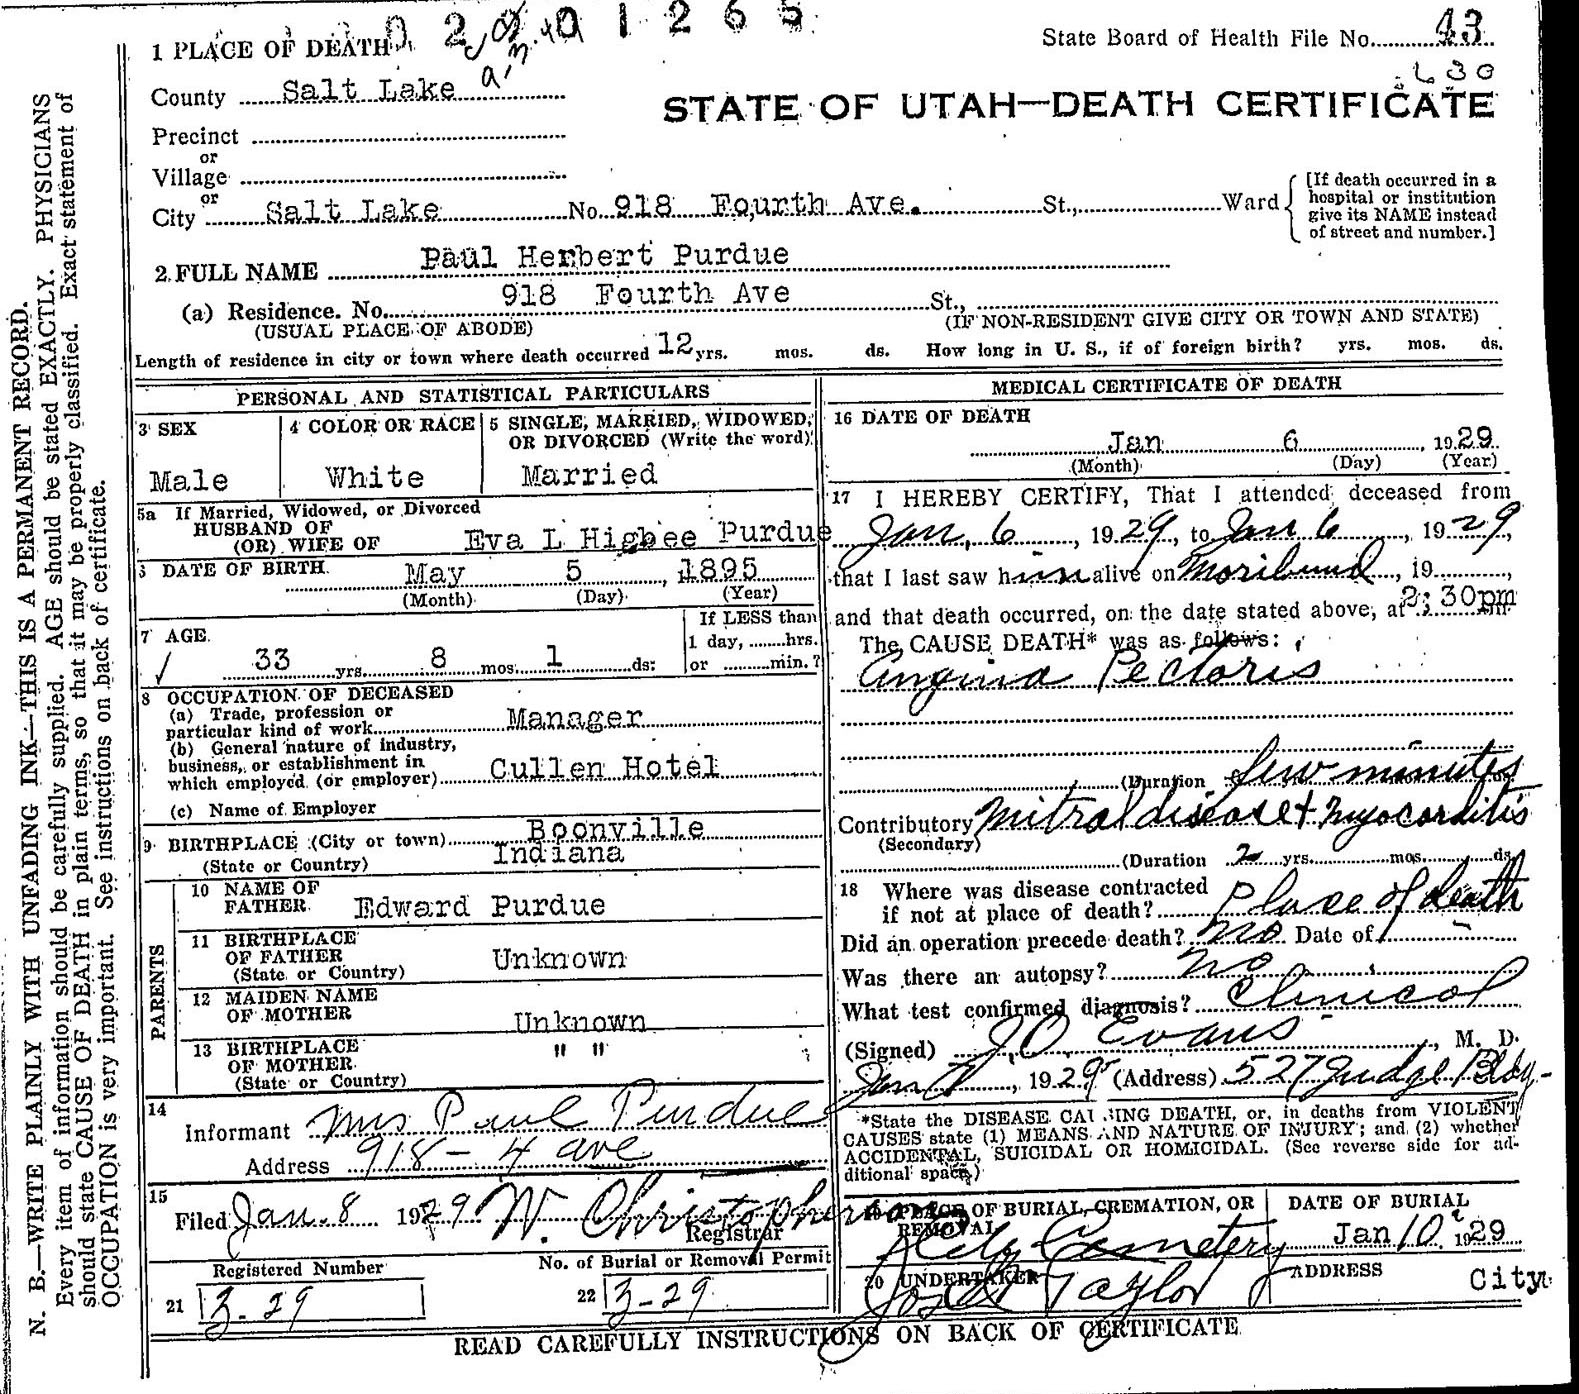 1 PLACE OF DEATH
State Board of Health File No. 43
630
County Salt Lake
STATE OF UTAH—DEATH CERTIFICATE
Precinct
or
Village
or
City Salt Lake No 918 Fourth Ave. St., Ward
[If death occurred in a
hospital or institution
give its NAME instead
of street and number.]
2 FULL NAME Paul Herbert Purdue
(a) Residence. No. 918 Fourth Ave St.,
(USUAL PLACE OF ABODE) (IF NON-RESIDENT GIVE CITY OR TOWN AND STATE)
Length of residence in city or town where death occurred 12 yrs. mos. ds. How long in U. S., if of foreign birth? yrs. mos. ds.
PERSONAL AND STATISTICAL PARTICULARS
3 SEX
Male
4 COLOR OR RACE
White
5 SINGLE, MARRIED, WIDOWED,
OR DIVORCED (Write the word)
Married
5a If Married, Widowed, or Divorced
HUSBAND OF
(OR) WIFE OF Eva L Higbee Purdue
6 DATE OF BIRTH May 5, 1895
(Month) (Day) (Year)
7 AGE
33 yrs. 8 mos. 1 ds.
If LESS than
1 day, hrs.
or min.?
8 OCCUPATION OF DECEASED
(a) Trade, profession or
particular kind of work Manager
(b) General nature of industry,
business, or establishment in
which employed (or employer) Cullen Hotel
(c) Name of Employer
9 BIRTHPLACE (City or town) Boonville
(State or Country) Indiana
PARENTS
10 NAME OF
FATHER Edward Purdue
11 BIRTHPLACE
OF FATHER Unknown
(State or Country)
12 MAIDEN NAME
OF MOTHER Unknown
13 BIRTHPLACE " "
OF MOTHER
(State or Country)
14
Informant Mrs Paul Purdue
Address 918 - 4 ave
15
Filed Jan. 8 1929 W. Christopherson
Registrar
Registered Number
21 3-29
No. of Burial or Removal Permit
22 3-29
MEDICAL CERTIFICATE OF DEATH
16 DATE OF DEATH
Jan 6, 1929
(Month) (Day) (Year)
17 I HEREBY CERTIFY, That I attended deceased from
Jan, 6, 1929, to Jan 6, 1929,
that I last saw him alive on Moribund, 19,
and that death occurred, on the date stated above, at 2:30pm
The CAUSE DEATH* was as follows:
Angina Pectoris
(Duration few minutes
Contributory mitral disease + myocarditis
(Secondary)
(Duration 2 yrs. mos. ds.
18 Where was disease contracted
if not at place of death? place of death
Did an operation precede death? no Date of
Was there an autopsy? no
What test confirmed diagnosis? Clinical
(Signed) J.O. Evans, M. D.
Jan 7, 1929 (Address) 527 Judge Bldg-
*State the DISEASE CAUSING DEATH, or, in deaths from VIOLENT
CAUSES state (1) MEANS AND NATURE OF INJURY; and (2) whether
ACCIDENTAL, SUICIDAL OR HOMICIDAL. (See reverse side for ad-
ditional space.)
19 PLACE OF BURIAL, CREMATION, OR
REMOVAL
City Cemetery
DATE OF BURIAL
Jan 10, 1929
20 UNDERTAKER
Taylor
ADDRESS
City
READ CAREFULLY INSTRUCTIONS ON BACK OF CERTIFICATE
N. B.—WRITE PLAINLY WITH UNFADING INK—THIS IS A PERMANENT RECORD.
Every item of information should be carefully supplied. AGE should be stated EXACTLY. PHYSICIANS
should state CAUSE OF DEATH in plain terms, so that it may be properly classified. Exact statement of
OCCUPATION is very important. See instructions on back of certificate.